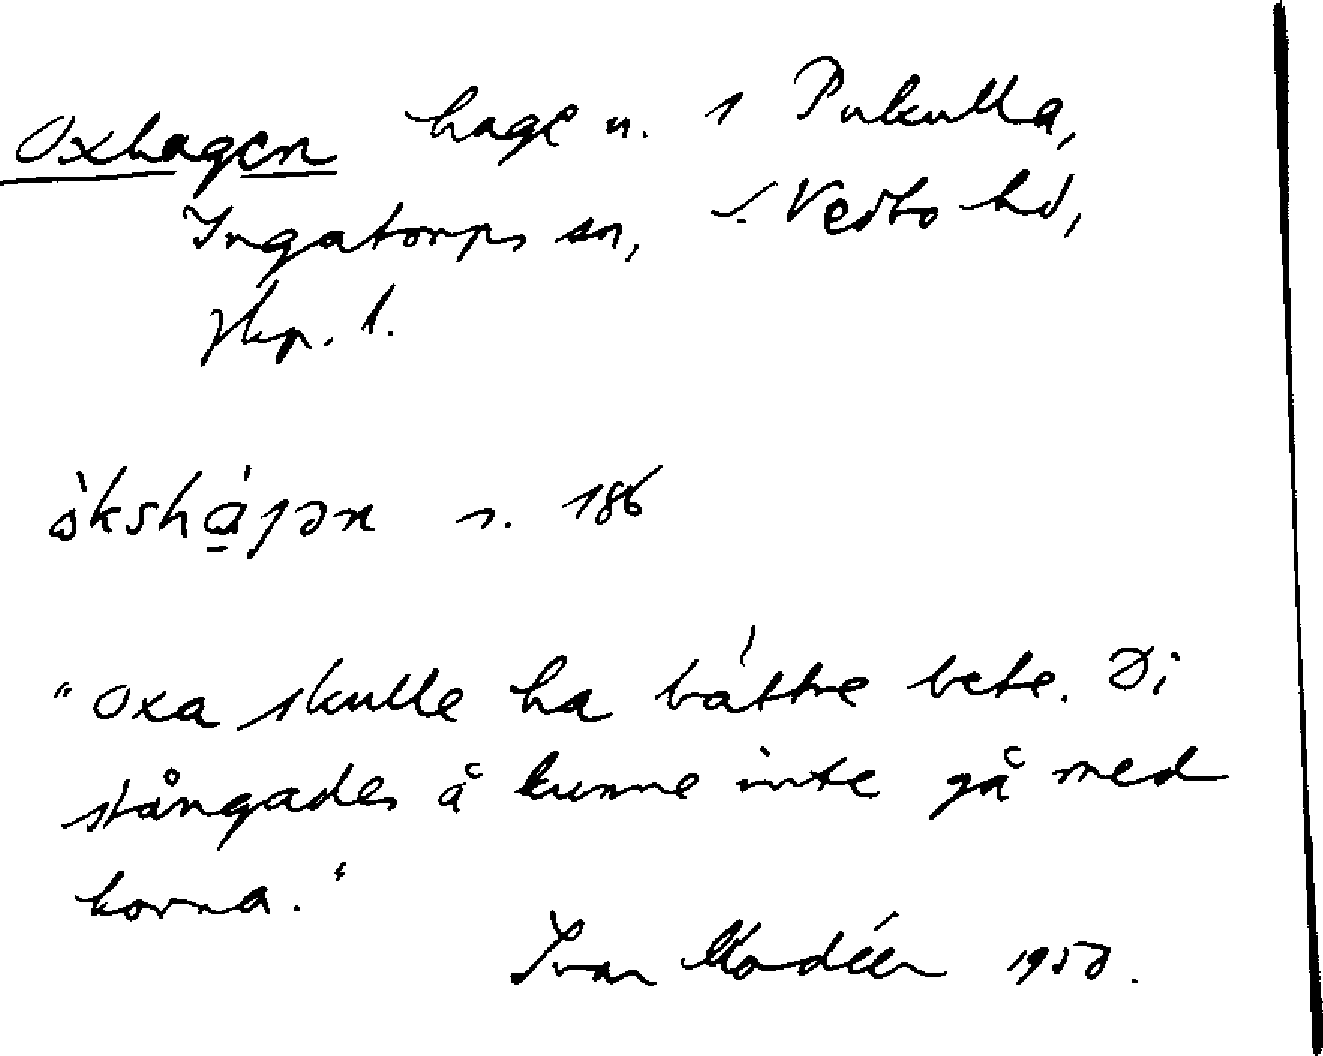 Oxhagen hage n. 1 Pukulla,
Ingatorps sn, S. Vedbo hd,
Jkp. l.
òkshájən s. 186
"Oxa skulle ha bättre bete. Di
stångades å kunne inte gå med
korna."
Ivar Modéer 1950.